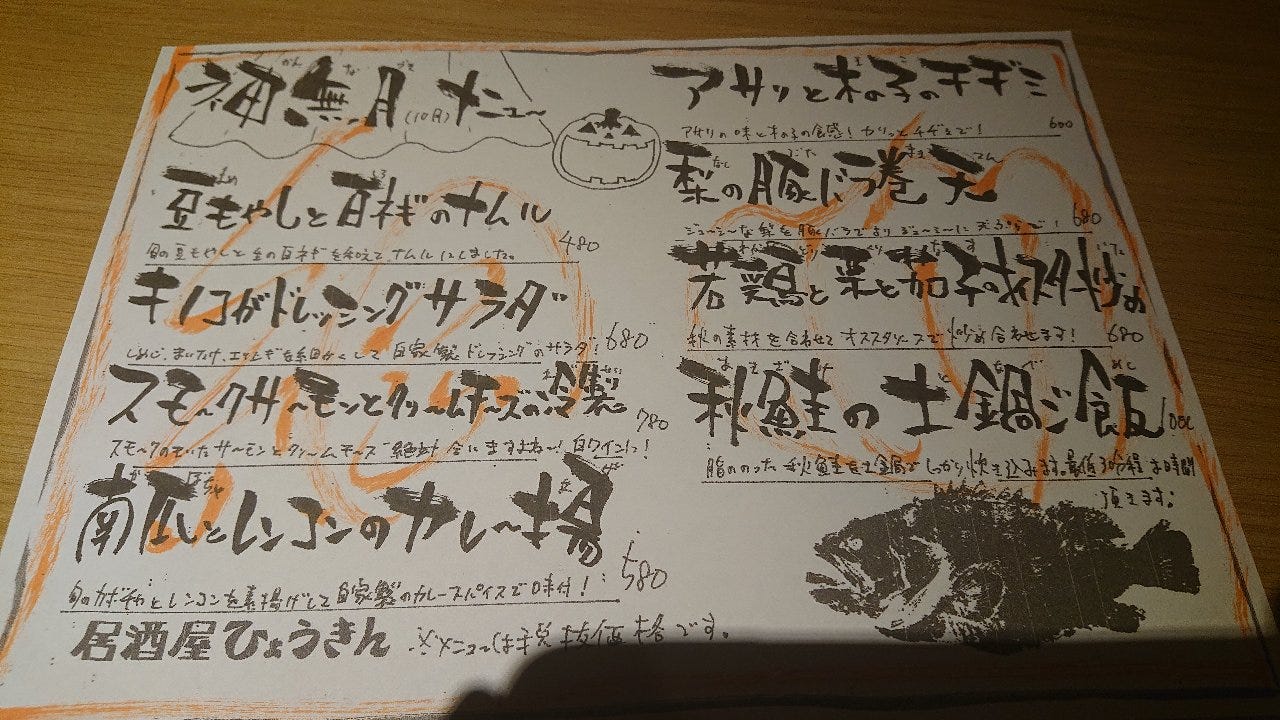 神無月(10月)メニュー
かんなづき
豆もやしと白ネギのナムル
480
旬の豆もやしと旬の白ネギを和えてナムルにしました。
キノコがドレッシングサラダ
680
しめじ、まいたけ、エリンギを細かくして自家製ドレッシングのサラダ!
スモークサーモンとクリームチーズの冷製
780
スモークのきいたサーモンとクリームチーズ 絶対合いますよね〜!白ワインに!
南瓜とレンコンのカレー揚
580
旬のカボチャとレンコンを素揚げして自家製のカレースパイスで味付!
居酒屋ひょうきん ※メニューは税抜価格です。
アサリと木の子のチヂミ
アサリの味と木の子の食感!カリッとチヂミで! 600
梨の豚バラ巻天
680
ジューシーな梨を豚バラでよりジューシーに天ぷらで!
若鶏と栗と茄子のオイスター炒め
秋の素材を合わせてオイスターソースで炒め合わせます! 680
秋鮭の土鍋ご飯
1000
脂ののった秋鮭を土鍋でしっかり炊き込みます。最低30分程お時間
頂きます。